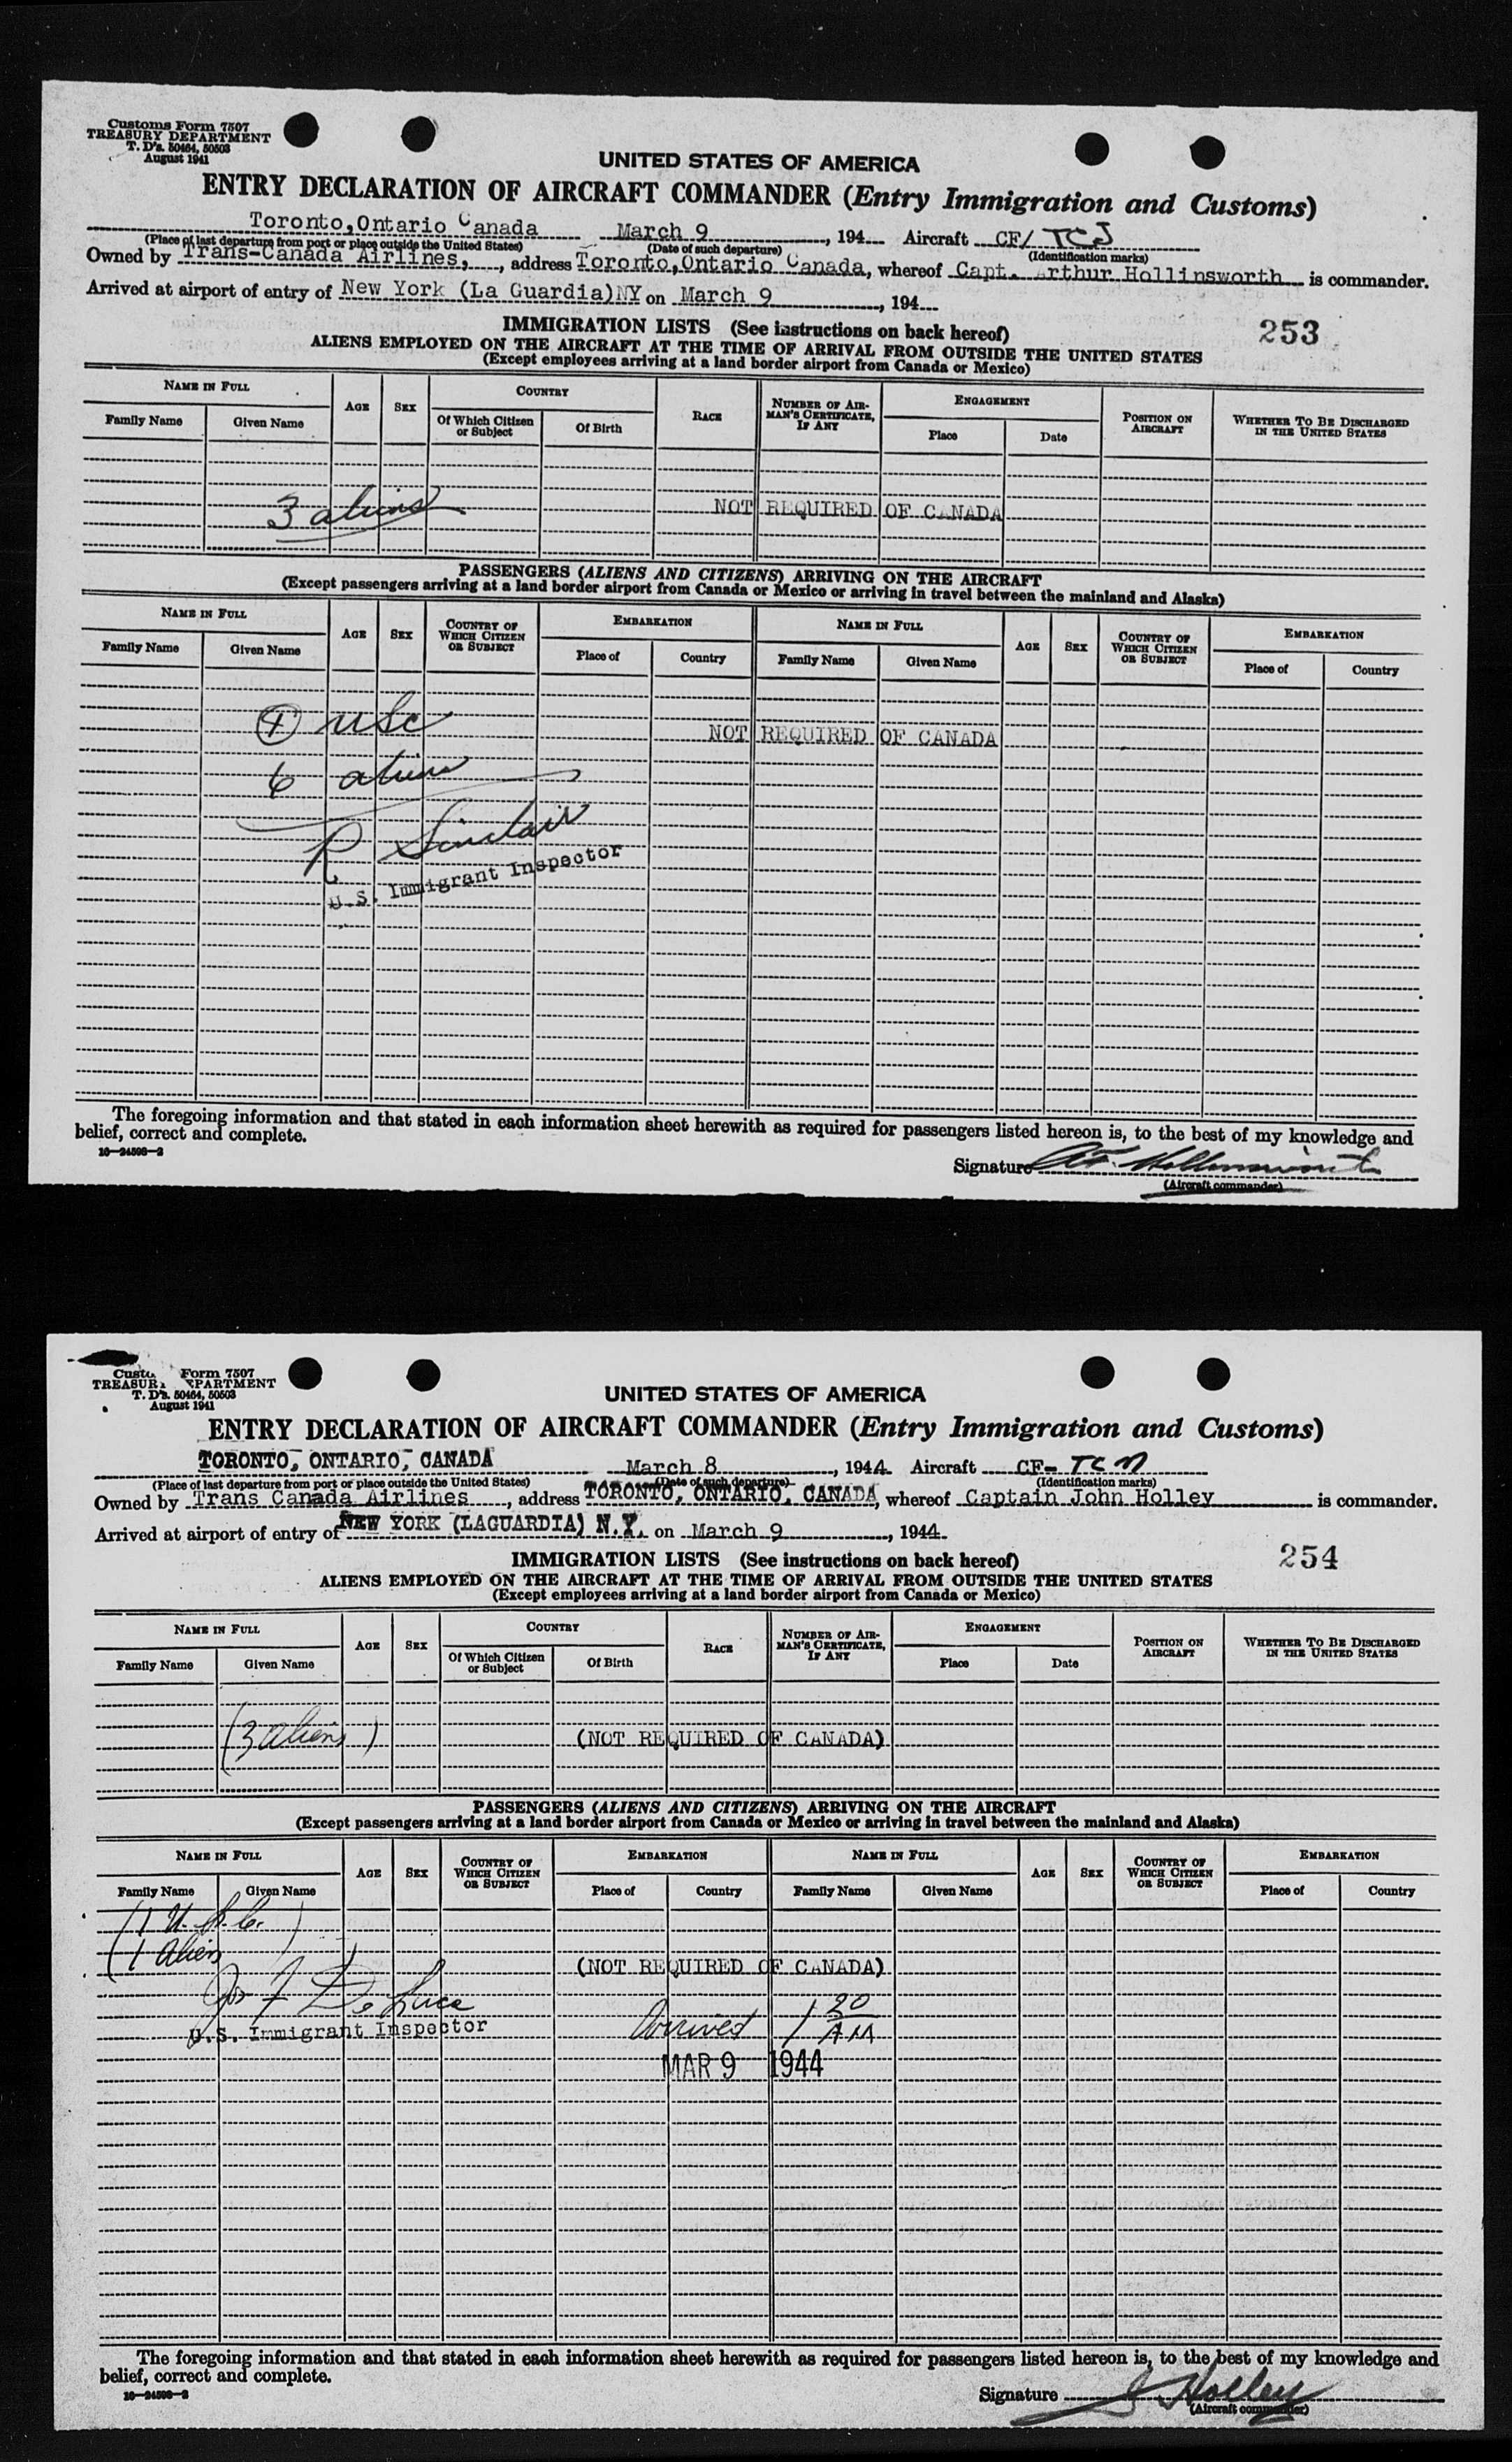 Customs Form 7507
TREASURY DEPARTMENT
T. D's. 50464, 50503
August 1941
UNITED STATES OF AMERICA
ENTRY DECLARATION OF AIRCRAFT COMMANDER (Entry Immigration and Customs)
Toronto,Ontario Canada March 9, 194 Aircraft CF/ TCJ
(Place of last departure from port or place outside the United States) (Date of such departure) (Identification marks)
Owned by Trans-Canada Airlines, , address Toronto,Ontario Canada, whereof Capt. Arthur Hollinsworth is commander.
Arrived at airport of entry of New York (La Guardia)NY on March 9, 194
IMMIGRATION LISTS (See instructions on back hereof) 253
ALIENS EMPLOYED ON THE AIRCRAFT AT THE TIME OF ARRIVAL FROM OUTSIDE THE UNITED STATES
(Except employees arriving at a land border airport from Canada or Mexico)
NAME IN FULL AGE SEX COUNTRY RACE NUMBER OF AIRMAN'S CERTIFICATE, IF ANY ENGAGEMENT POSITION ON AIRCRAFT WHETHER TO BE DISCHARGED IN THE UNITED STATES
Family Name Given Name Of Which Citizen or Subject Of Birth Place Date
3 aliens NOT REQUIRED OF CANADA
PASSENGERS (ALIENS AND CITIZENS) ARRIVING ON THE AIRCRAFT
(Except passengers arriving at a land border airport from Canada or Mexico or arriving in travel between the mainland and Alaska)
NAME IN FULL AGE SEX COUNTRY OF WHICH CITIZEN OR SUBJECT EMBARKATION NAME IN FULL AGE SEX COUNTRY OF WHICH CITIZEN OR SUBJECT EMBARKATION
Family Name Given Name Place of Country Family Name Given Name Place of Country
USC NOT REQUIRED OF CANADA
6 aliens
R Sinclair
U.S. Immigrant Inspector
The foregoing information and that stated in each information sheet herewith as required for passengers listed hereon is, to the best of my knowledge and
belief, correct and complete.
16—24598—2
Signature
(Aircraft commander)
Form 7507
T. D's. 50464, 50503
August 1941
UNITED STATES OF AMERICA
ENTRY DECLARATION OF AIRCRAFT COMMANDER (Entry Immigration and Customs)
TORONTO, ONTARIO, CANADA March 8, 1944 Aircraft CF- TCM
(Place of last departure from port or place outside the United States) (Date of such departure) (Identification marks)
Owned by Trans Canada Airlines, address TORONTO, ONTARIO, CANADA, whereof Captain John Holley is commander.
Arrived at airport of entry of NEW YORK (LAGUARDIA) N.Y. on March 9, 1944
IMMIGRATION LISTS (See instructions on back hereof) 254
ALIENS EMPLOYED ON THE AIRCRAFT AT THE TIME OF ARRIVAL FROM OUTSIDE THE UNITED STATES
(Except employees arriving at a land border airport from Canada or Mexico)
NAME IN FULL AGE SEX COUNTRY RACE NUMBER OF AIRMAN'S CERTIFICATE, IF ANY ENGAGEMENT POSITION ON AIRCRAFT WHETHER TO BE DISCHARGED IN THE UNITED STATES
Family Name Given Name Of Which Citizen or Subject Of Birth Place Date
(3 aliens) (NOT REQUIRED OF CANADA)
PASSENGERS (ALIENS AND CITIZENS) ARRIVING ON THE AIRCRAFT
(Except passengers arriving at a land border airport from Canada or Mexico or arriving in travel between the mainland and Alaska)
NAME IN FULL AGE SEX COUNTRY OF WHICH CITIZEN OR SUBJECT EMBARKATION NAME IN FULL AGE SEX COUNTRY OF WHICH CITIZEN OR SUBJECT EMBARKATION
Family Name Given Name Place of Country Family Name Given Name Place of Country
(1 U.S.C.)
(1 Alien) (NOT REQUIRED OF CANADA)
Jos F DeLuca
U.S. Immigrant Inspector Arrived 1 20 AM
MAR 9 1944
The foregoing information and that stated in each information sheet herewith as required for passengers listed hereon is, to the best of my knowledge and
belief, correct and complete.
16—24598—2
Signature J Holley
(Aircraft commander)